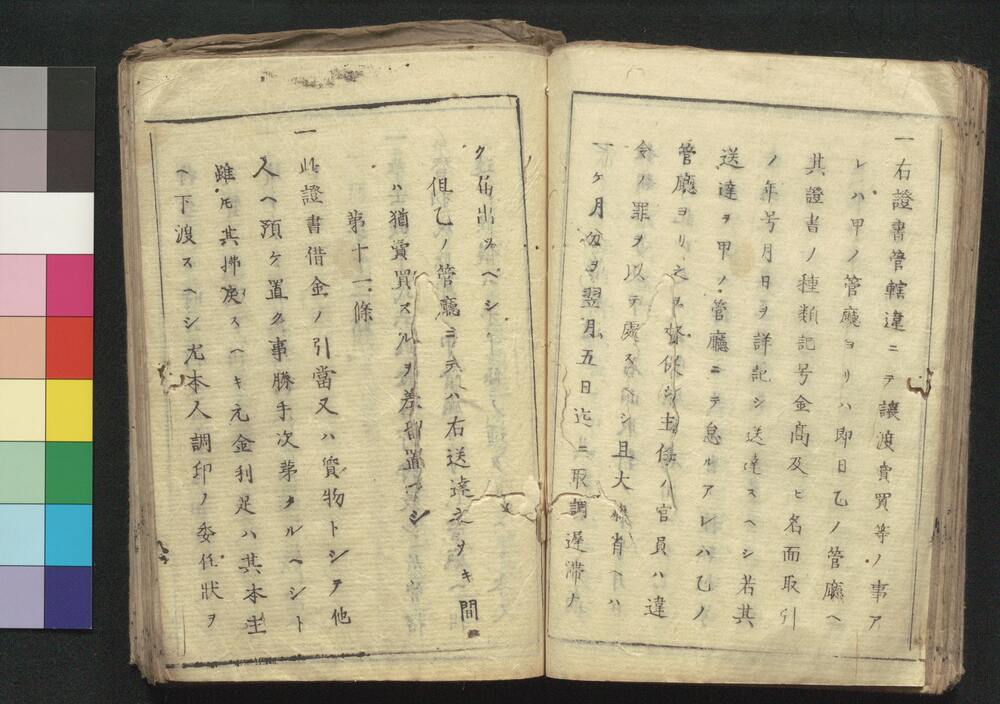 一右證書管轄違ニテ讓渡賣買等ノ事ア
レハ甲ノ管廳ヨリハ即日乙ノ管廳ヘ
其證書ノ種類記号金髙及ヒ名面取引
ノ年号月日ヲ詳記シ送達スヘシ若其
送達ヲ甲ノ管廳ニテ怠ルアレハ乙ノ
管廳ヨリ之ヲ督促シ主任ノ官員ハ違
令ノ罪ヲ以テ處スヘシ且大藏省ヘハ
一ケ月分ヲ翌月五日迄ニ取調遲滯ナ
ク届出スベシ
但乙ノ管廳ニテハ右送達之ナキ間
ハ猶賣買スルヲ差留置ベシ
第十二條
一此證書借金ノ引當又ハ質物トシテ他
人ヘ預ケ置ク事勝手次第タルヘシト
雖圧其拂戻スヘキ元金利足ハ其本主
ヘ下渡スヘシ尤本人調印ノ委任狀ヲ